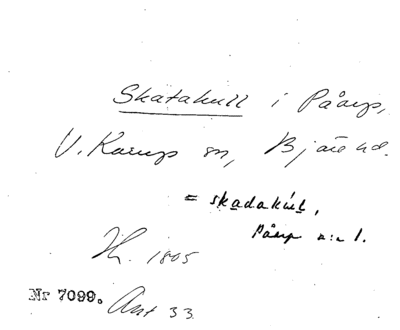 Skatakull i Påarp,
V. Karups sn, Bjäre hd.
= skadakúl,
Påarp n:r 1.
1805
Nr 7099.
Ant 33